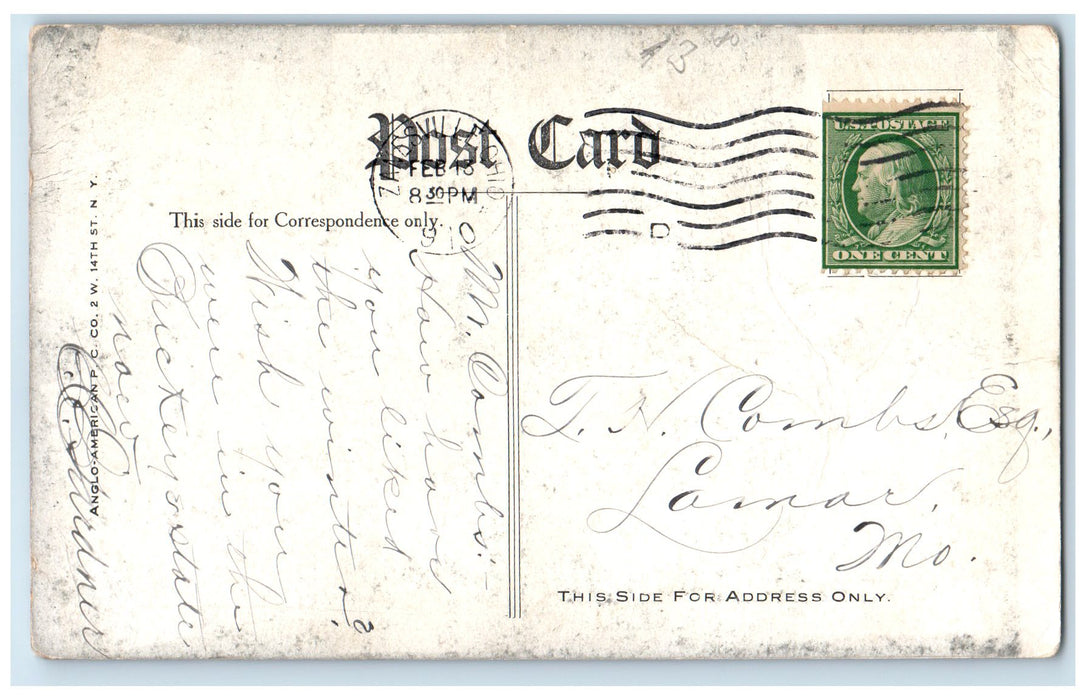 13 40
Post Card
ZANESVILLE, OHIO
FEB 18
8 30 PM
1910
D
U.S. POSTAGE
ONE CENT
This side for Correspondence only.
Mr. Combs:-
How have
you liked
the winter?
Wish you
were in the
Buckeye state
now
C. Gardner
T. N. Combs, Esq.,
Lamar,
Mo.
THIS SIDE FOR ADDRESS ONLY.
ANGLO-AMERICAN P. C. CO. 2 W. 14TH ST. N. Y.